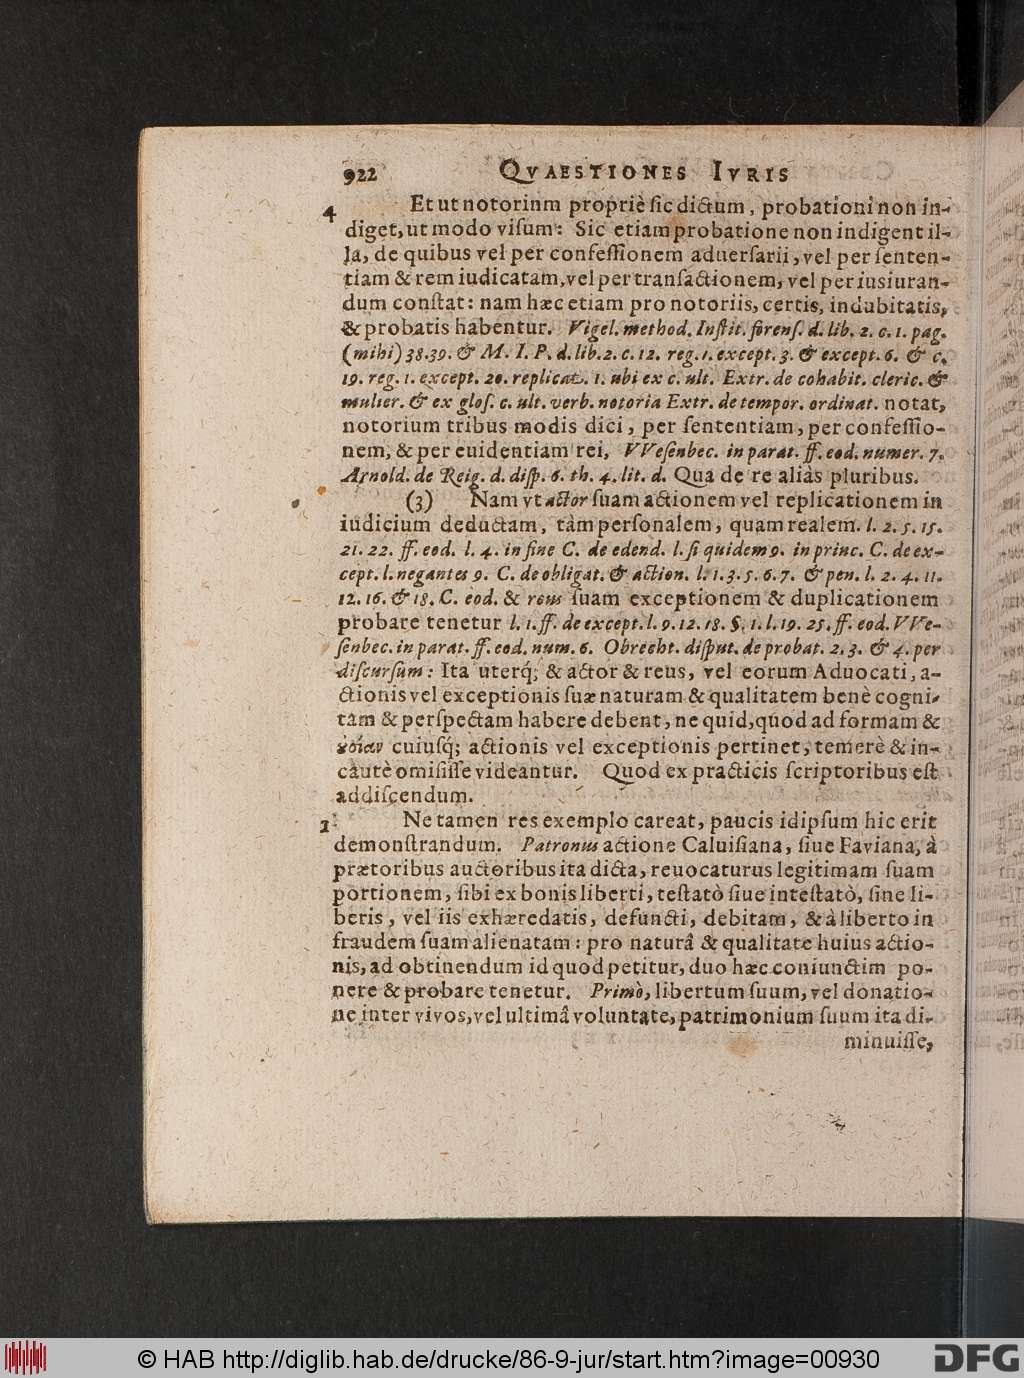 922 QVAESTIONES IVRIS
4 Et ut notorium propriè ſic dictum, probationi non in-
diget, ut modo viſum: Sic etiam probatione non indigent il-
la, de quibus vel per confeſſionem aduerſarii, vel per ſenten-
tiam & rem iudicatam, vel per tranſactionem, vel per iusiuran-
dum conſtat: nam hæc etiam pro notoriis, certis, indubitatis,
& probatis habentur. Vigel. method. Inſtit. forenſ. d. lib. 2. c. 1. pag.
(mihi) 38.39. & M. I. P. d. lib. 2. c. 12. reg. 1. except. 3. & except. 6. & c.
19. reg. 1. except. 20. replicat. 1. ubi ex c. ult. Extr. de cohabit. cleric. &
mulier. & ex gloſ. c. ult. verb. notoria Extr. de tempor. ordinat. notat,
notorium tribus modis dici, per ſententiam, per confeſſio-
nem, & per euidentiam rei, VVeſenbec. in parat. ff. eod. numer. 7.
Arnold. de Reig. d. diſp. 6. th. 4. lit. d. Qua de re aliàs pluribus.
(3) Nam vt actor ſuam actionem vel replicationem in
iudicium deductam, tàm perſonalem, quam realem. l. 2. 5. 15.
21. 22. ff. eod. l. 4. in fine C. de edend. l. ſi quidem 9. in princ. C. de ex-
cept. l. negantes 9. C. de obligat. & action. l. 1. 3. 5. 6. 7. & pen. l. 2. 4. 11.
12. 16. & 18. C. eod. & reus ſuam exceptionem & duplicationem
probare tenetur l. 1. ff. de except. l. 9. 12. 18. §. 1. l. 19. 25. ff. eod. VVe-
ſenbec. in parat. ff. eod. num. 6. Obrecht. diſput. de probat. 2. 3. & 4. per
diſcurſum: Ita uterq́; & actor & reus, vel eorum Aduocati, a-
ctionis vel exceptionis ſuæ naturam & qualitatem benè cogni-
tam & perſpectam habere debent, ne quid, quod ad formam &
ἐσίαν cuiuſq́; actionis vel exceptionis pertinet, temerè & in-
cautè omiſiſſe videantur. Quod ex practicis ſcriptoribus eſt
addiſcendum.
1 Ne tamen res exemplo careat, paucis idipſum hic erit
demonſtrandum. Patronus actione Caluiſiana, ſiue Faviana, à
prætoribus auctoribus ita dicta, reuocaturus legitimam ſuam
portionem, ſibi ex bonis liberti, teſtatò ſiue inteſtatò, ſine li-
beris, vel iis exhæredatis, defuncti, debitam, & à liberto in
fraudem ſuam alienatam: pro naturâ & qualitate huius actio-
nis, ad obtinendum id quod petitur, duo hæc coniunctim po-
nere & probare tenetur. Primò, libertum ſuum, vel donatio-
ne inter vivos, vel ultimâ voluntate, patrimonium ſuum ita di-
minuiſſe,
© HAB http://diglib.hab.de/drucke/86-9-jur/start.htm?image=00930
DFG